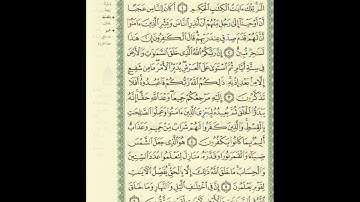 الٓرۚ تِلۡكَ ءَايَٰتُ ٱلۡكِتَٰبِ ٱلۡحَكِيمِ ١ أَكَانَ لِلنَّاسِ عَجَبًا
أَنۡ أَوۡحَيۡنَآ إِلَىٰ رَجُلٖ مِّنۡهُمۡ أَنۡ أَنذِرِ ٱلنَّاسَ وَبَشِّرِ ٱلَّذِينَ ءَامَنُوٓاْ
أَنَّ لَهُمۡ قَدَمَ صِدۡقٍ عِندَ رَبِّهِمۡۗ قَالَ ٱلۡكَٰفِرُونَ إِنَّ هَٰذَا
لَسَٰحِرٞ مُّبِينٌ ٢ إِنَّ رَبَّكُمُ ٱللَّهُ ٱلَّذِي خَلَقَ ٱلسَّمَٰوَٰتِ وَٱلۡأَرۡضَ
فِي سِتَّةِ أَيَّامٖ ثُمَّ ٱسۡتَوَىٰ عَلَى ٱلۡعَرۡشِۖ يُدَبِّرُ ٱلۡأَمۡرَۖ مَا مِن شَفِيعٍ
إِلَّا مِنۢ بَعۡدِ إِذۡنِهِۦۚ ذَٰلِكُمُ ٱللَّهُ رَبُّكُمۡ فَٱعۡبُدُوهُۚ أَفَلَا
تَذَكَّرُونَ ٣ إِلَيۡهِ مَرۡجِعُكُمۡ جَمِيعٗاۖ وَعۡدَ ٱللَّهِ حَقًّاۚ إِنَّهُۥ
يَبۡدَؤُاْ ٱلۡخَلۡقَ ثُمَّ يُعِيدُهُۥ لِيَجۡزِيَ ٱلَّذِينَ ءَامَنُواْ وَعَمِلُواْ ٱلصَّٰلِحَٰتِ
بِٱلۡقِسۡطِۚ وَٱلَّذِينَ كَفَرُواْ لَهُمۡ شَرَابٞ مِّنۡ حَمِيمٖ وَعَذَابٌ
أَلِيمُۢ بِمَا كَانُواْ يَكۡفُرُونَ ٤ هُوَ ٱلَّذِي جَعَلَ ٱلشَّمۡسَ
ضِيَآءٗ وَٱلۡقَمَرَ نُورٗا وَقَدَّرَهُۥ مَنَازِلَ لِتَعۡلَمُواْ عَدَدَ ٱلسِّنِينَ
وَٱلۡحِسَابَۚ مَا خَلَقَ ٱللَّهُ ذَٰلِكَ إِلَّا بِٱلۡحَقِّۚ يُفَصِّلُ ٱلۡأٓيَٰتِ
لِقَوۡمٖ يَعۡلَمُونَ ٥ إِنَّ فِي ٱخۡتِلَٰفِ ٱلَّيۡلِ وَٱلنَّهَارِ وَمَا خَلَقَ